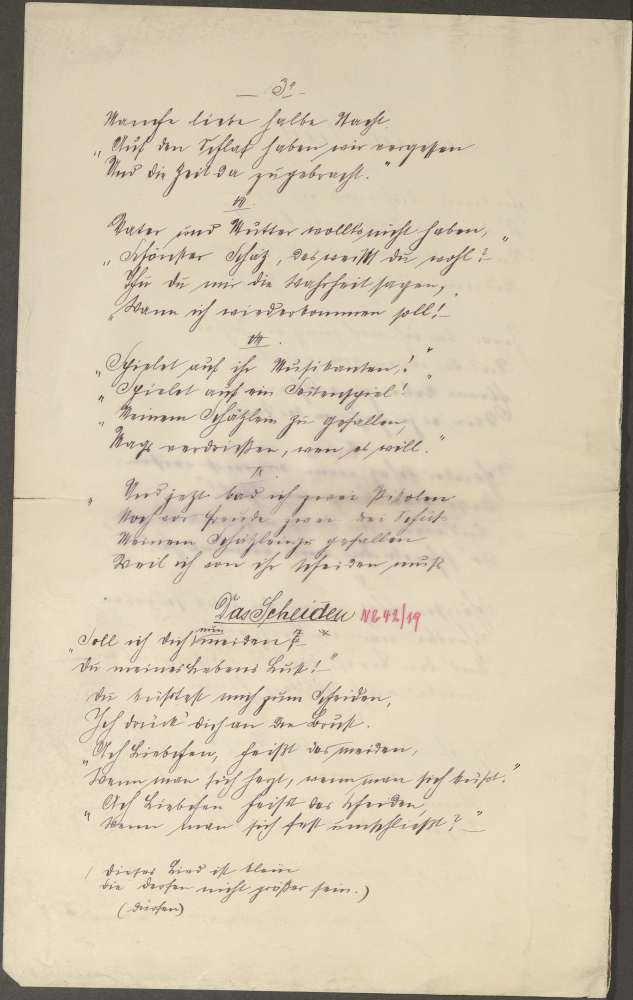 — 3. —
Manche liebe halbe Nacht
„Auf den Schlaf haben wir vergessen
Und die Zeit da zugebracht.“
III.
Vater und Mutter wollts nicht haben,
„Schönster Schatz, das weißt du wohl?“
Thu du mir die Wahrheit sagen,
„Wann ich wiederkommen soll!“
IV.
„Spielet auf ihr Musikanten,!“
„Spielet auf ein Seitenspiel!“
„Meinem Schätzlein zu gefallen,
Mags verdrießen, wen es will.“
V
„Und jetzt lad ich zwei Pistolen
Noch vor Freude zwei drei Schuß
Meinem Schätzlein zu gefallen
Weil ich von ihr scheiden muß
Das Scheiden № 42/19
„Soll ich dich nun meiden?
Du meines Lebens Lust!“
Du küßtest mich zum Scheiden,
Ich drück' dich an die Brust.
„Ach Liebchen, heißt das meiden,
Wenn man sich herzt, wenn man sich küßt.“
„Ach Liebchen heißt das scheiden,
Wenn man sich fest umschließt?“
(Dieses Lied ist klein
die derfen nicht größer sein.)
(dürfen)